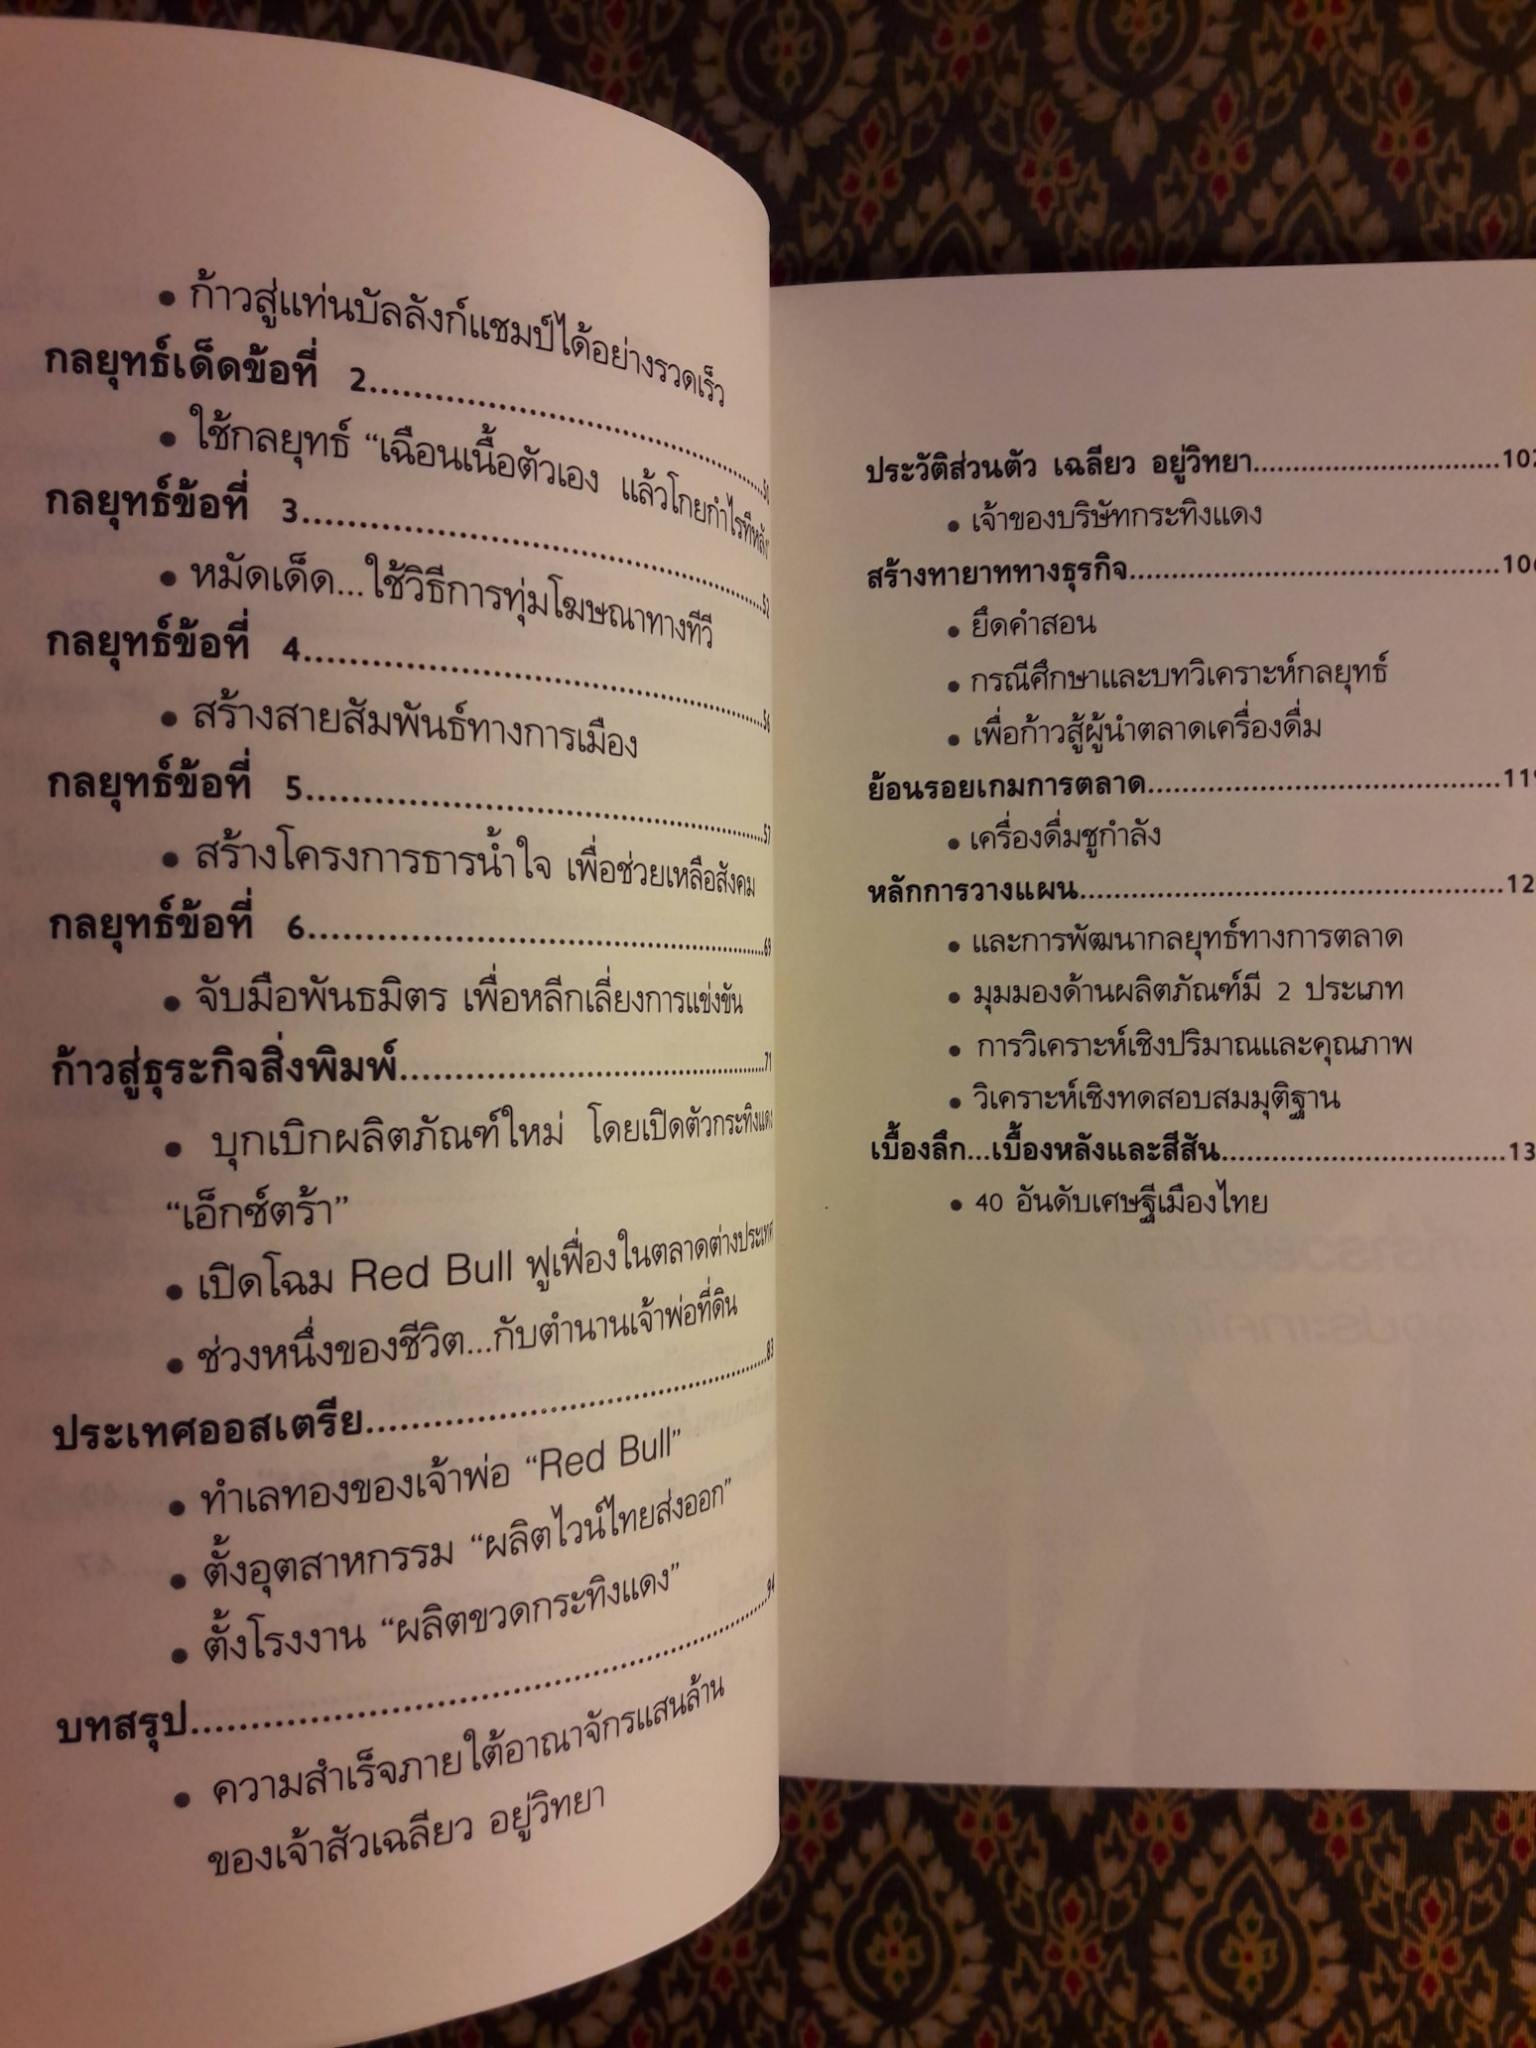 • ก้าวสู่แท่นบัลลังก์แชมป์ได้อย่างรวดเร็ว
กลยุทธ์เด็ดข้อที่ 2..............................50
• ใช้กลยุทธ์ “เฉือนเนื้อตัวเอง แล้วโกยกำไรทีหลัง”
กลยุทธ์ข้อที่ 3..............................52
• หมัดเด็ด...ใช้วิธีการทุ่มโฆษณาทางทีวี
กลยุทธ์ข้อที่ 4..............................56
• สร้างสายสัมพันธ์ทางการเมือง
กลยุทธ์ข้อที่ 5..............................57
• สร้างโครงการธารน้ำใจ เพื่อช่วยเหลือสังคม
กลยุทธ์ข้อที่ 6..............................69
• จับมือพันธมิตร เพื่อหลีกเลี่ยงการแข่งขัน
ก้าวสู่ธุระกิจสิ่งพิมพ์..............................71
• บุกเบิกผลิตภัณฑ์ใหม่ โดยเปิดตัวกระทิงแดง
“เอ็กซ์ตร้า”
• เปิดโฉม Red Bull ฟูเฟื่องในตลาดต่างประเทศ
• ช่วงหนึ่งของชีวิต...กับตำนานเจ้าพ่อที่ดิน
ประเทศออสเตรีย..............................83
• ทำเลทองของเจ้าพ่อ “Red Bull”
• ตั้งอุตสาหกรรม “ผลิตไวน์ไทยส่งออก”
• ตั้งโรงงาน “ผลิตขวดกระทิงแดง”
บทสรุป..............................94
• ความสำเร็จภายใต้อาณาจักรแสนล้าน
ของเจ้าสัวเฉลียว อยู่วิทยา
ประวัติส่วนตัว เฉลียว อยู่วิทยา..............................102
• เจ้าของบริษัทกระทิงแดง
สร้างทายาททางธุรกิจ..............................106
• ยึดคำสอน
• กรณีศึกษาและบทวิเคราะห์กลยุทธ์
• เพื่อก้าวสู้ผู้นำตลาดเครื่องดื่ม
ย้อนรอยเกมการตลาด..............................119
• เครื่องดื่มชูกำลัง
หลักการวางแผน..............................
• และการพัฒนากลยุทธ์ทางการตลาด
• มุมมองด้านผลิตภัณฑ์มี 2 ประเภท
• การวิเคราะห์เชิงปริมาณและคุณภาพ
• วิเคราะห์เชิงทดสอบสมมุติฐาน
เบื้องลึก...เบื้องหลังและสีสัน..............................
• 40 อันดับเศษฐีเมืองไทย